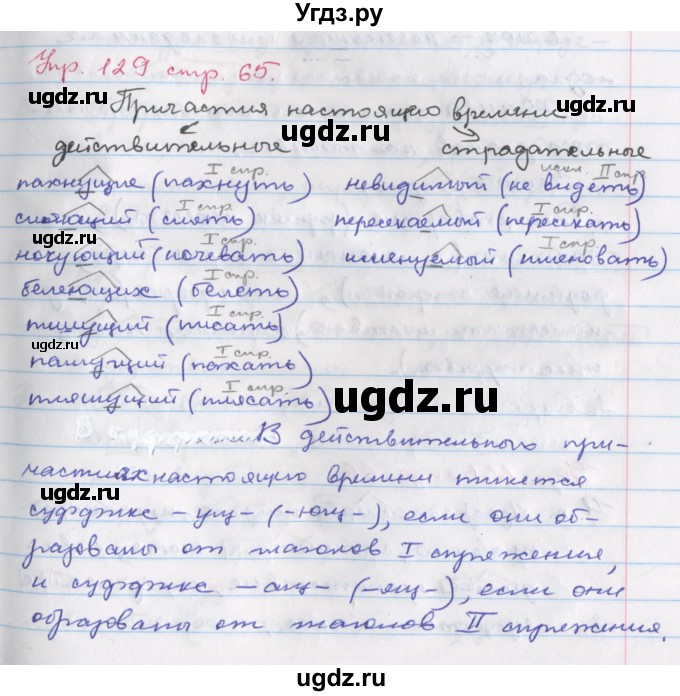 Угдз.ру
Упр. 129 стр. 65.
Причастия настоящего времени
действительные страдательные
пахнущие (пахнуть) I спр. невидимый (не видеть) искл. II спр.
сияющий (сиять) I спр. пересекаемый (пересекать) I спр.
ночующий (ночевать) I спр. именуемый (именовать) I спр.
белеющих (белеть) I спр.
пишущий (писать) I спр.
пашущий (пахать) I спр.
пляшущий (плясать) I спр.
В действительного при-
частиях настоящего времени пишется
суффикс -ущ- (-ющ-), если они об-
разованы от глаголов I спряжения,
и суффикс -ащ- (-ящ-), если они
образованы от глаголов II спряжения.
ugdz.ru
ugdz.ru
ugdz.ru
ugdz.ru
ugdz.ru
ugdz.ru
ugdz.ru
ugdz.ru
ugdz.ru
ugdz.ru